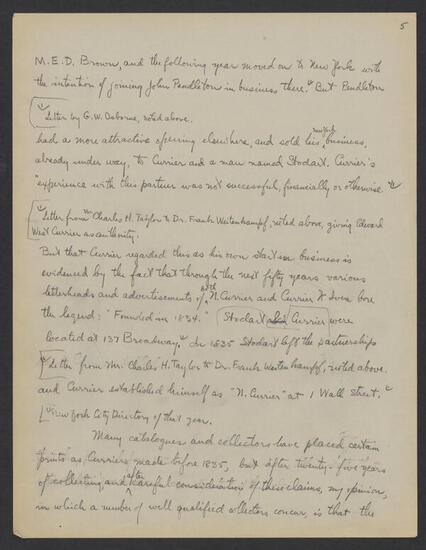 5
M.E.D. Brown, and the following year moved on to New York with
the intention of joining John Pendleton in business there. But Pendleton
Letter by G.W. Osborne, noted above.
had a more attractive opening elsewhere, and sold his New York business,
already under way, to Currier and a man named Stodart. Currier's
"experience with this partner was not successful, financially or otherwise."
Letter from Mr Charles H. Taylor to Dr. Frank Weitenkampf, noted above, giving Edward
West Currier as authority.
But that Currier regarded this as his own start in business is
evidenced by the fact that through the next fifty years various
letterheads and advertisements of both N. Currier and Currier & Ives bore
the legend: "Founded in 1834." Stodart & Currier were
located at 137 Broadway. In 1835 Stodart left the partnership
Letter from Mr. Charles H. Taylor to Dr. Frank Weitenkampf, noted above.
and Currier established himself as "N. Currier" at 1 Wall Street.
New York City Directory of that year.
Many catalogues and collectors have placed certain
prints as Curriers made before 1835, but after twenty-five years
of collecting, and after careful consideration of these claims, my opinion,
in which a number of well qualified collectors concur, is that the